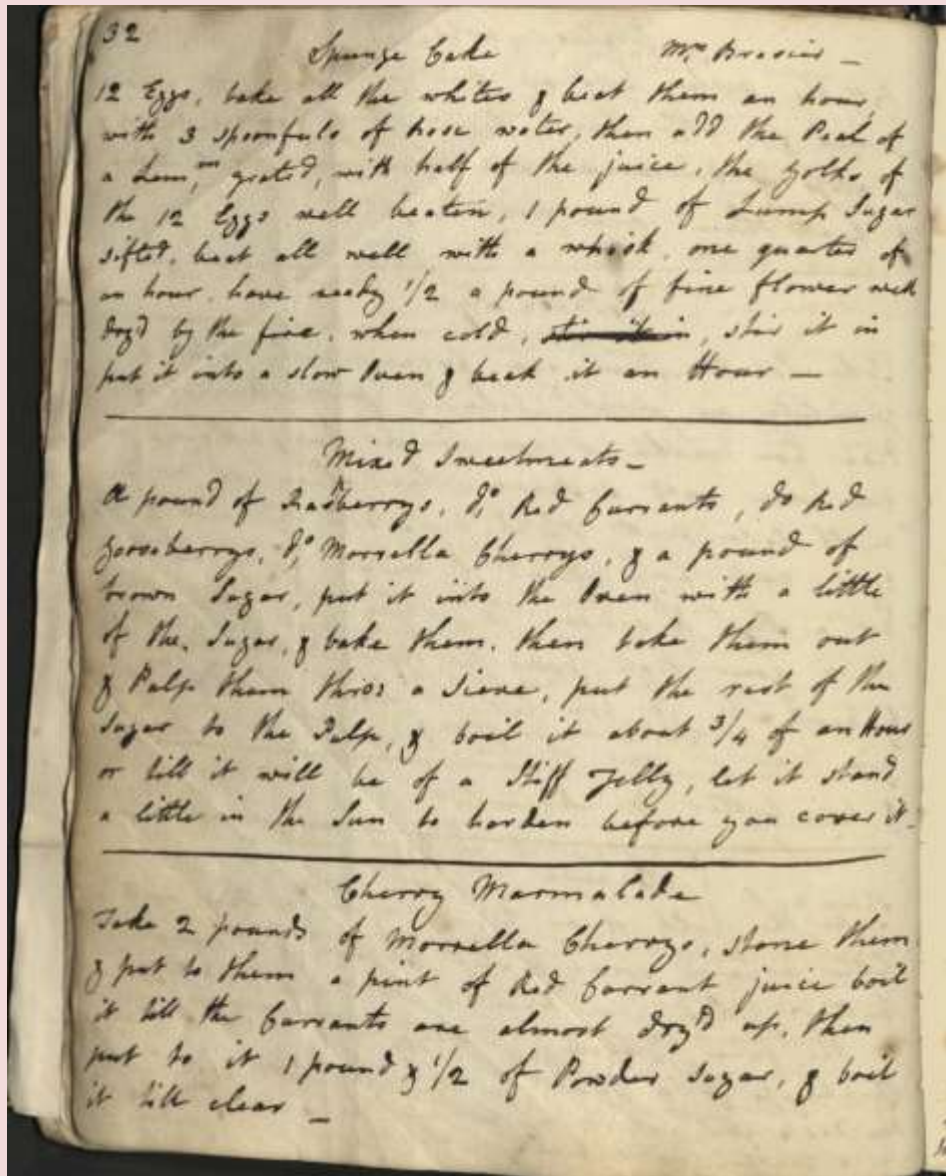 32
Spunge Cake Mrs Brasier -
12 Eggs, take all the whites & beat them an hour,
with 3 spoonfuls of Rose water, then add the Peel of
a Lemon, grated, with half of the juice, the Yolks of
the 12 Eggs well beaten, 1 pound of Lump Sugar
sifted, beat all well with a whisk, one quarter of
an hour, have ready 1/2 a pound of fine flower well
dry'd by the fire, when cold, stir it in, stir it in
put it into a slow Oven & beak it an Hour —
Mixed Sweetmeats -
A pound of Raspberrys, do, Red Currants, do Red
Gooseberrys, do, Morrella Cherrys, & a pound of
brown Sugar, put it into the Oven with a little
of the, Sugar, & bake them, then take them out
& Pulp them thro: a Sieve, put the rest of the
Sugar to the Pulp, & boil it about 3/4 of an Hour
or till it will be of a Stiff Jelly, let it stand
a little in the Sun to harden before you cover it -
Cherry Marmalade
Take 2 pounds of Morrella Cherrys, stone them
& put to them a pint of Red Currant juice boil
it till the Currants are almost dry'd up, then
put to it 1 pound & 1/2 of Powder Sugar, & boil
it till clear -